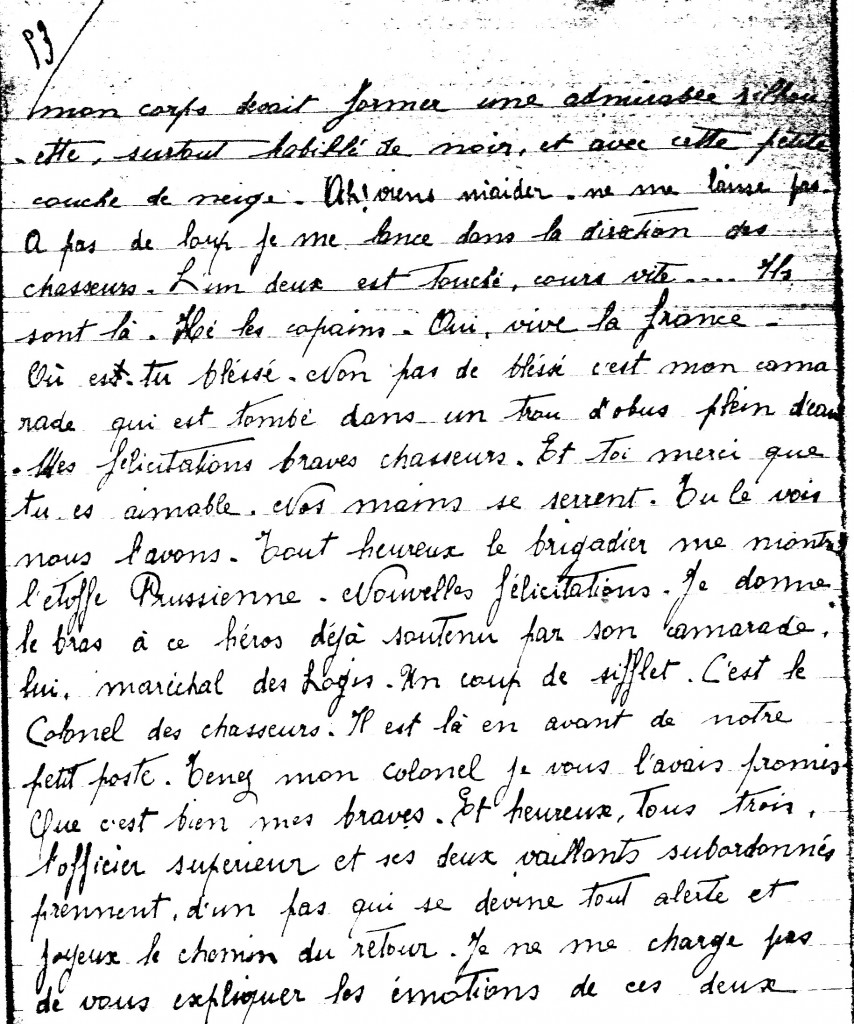 93
mon corps devait former une admirable silhou
-ette, surtout habillé de noir, et avec cette petite
couche de neige. Ah! viens m'aider. ne me laisse pas.
A pas de loup je me lance dans la direction des
chasseurs. L'un deux est touché, cours vite .... Ils
sont là. Hé les copains. Oui, vive la france.
Où est-tu bléssé. Non pas de bléssé c'est mon cama
rade qui est tombé dans un trou d'obus plein d'eau
. Mes félicitations braves chasseurs. Et toi merci que
tu es aimable. Nos mains se serrent. Tu le vois
nous l'avons. Tout heureux le brigadier me montre
l'étoffe Prussienne. Nouvelles félicitations. Je donne
le bras à ce héros déjà soutenu par son camarade,
lui, maréchal des Logis. Un coup de sifflet. C'est le
Colonel des chasseurs. Il est là en avant de notre
petit poste. Tenez mon colonel je vous l'avais promis.
Que c'est bien mes braves. Et heureux, tous trois,
l'officier superieur et ses deux vaillants subordonnés
prennent, d'un pas qui se devine tout alerte et
joyeux le chemin du retour. Je ne me charge pas
de vous expliquer les émotions de ces deux